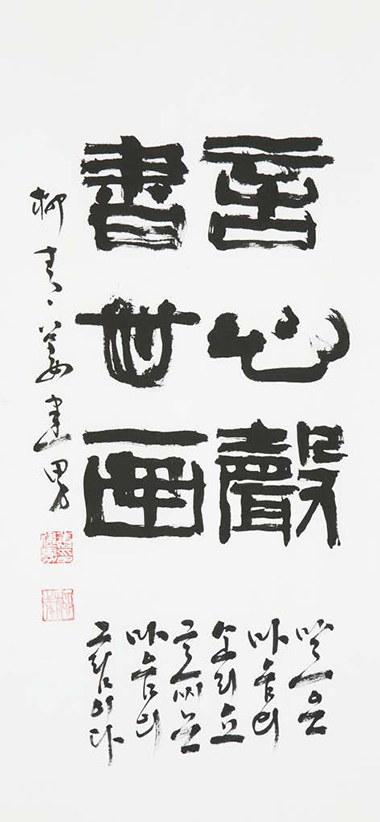 言心聲
書心画
말은
마음의
소리요
글씨는
마음의
그림이다
柳青 姜建男